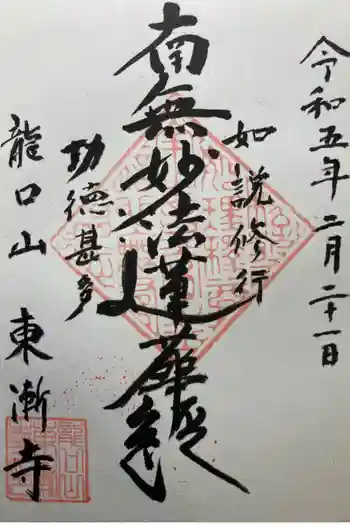 令和五年二月二十一日
如説修行
南無妙法蓮華経
功徳甚多
龍口山 東漸寺
龍口山